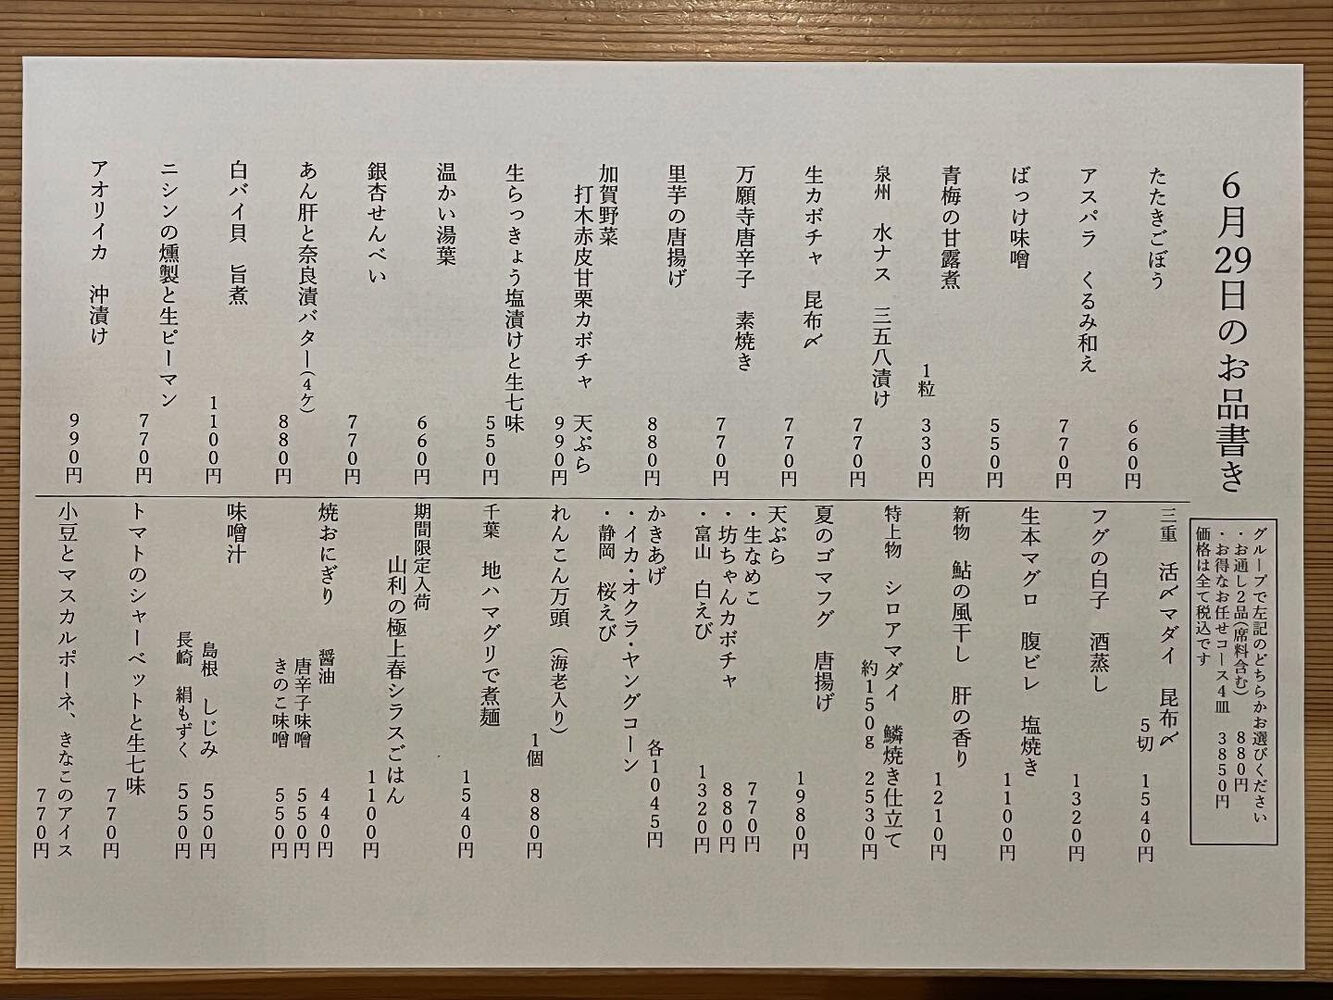 6月29日のお品書き
グループで左記のどちらかお選びください
・お通し2品(席料含む) 880円
・お得なお任せコース4皿 3850円
価格は全て税込です
たたきごぼう
660円
アスパラ くるみ和え
770円
ばっけ味噌
550円
青梅の甘露煮
1粒 330円
泉州 水ナス 三五八漬け
770円
生カボチャ 昆布〆
770円
万願寺唐辛子 素焼き
770円
里芋の唐揚げ
880円
加賀野菜
打木赤皮甘栗カボチャ 天ぷら
990円
生らっきょう塩漬けと生七味
550円
温かい湯葉
660円
銀杏せんべい
770円
あん肝と奈良漬バター(4ケ)
880円
白バイ貝 旨煮
1100円
ニシンの燻製と生ピーマン
770円
アオリイカ 沖漬け
990円
三重 活〆マダイ 昆布〆
5切 1540円
フグの白子 酒蒸し
1320円
生本マグロ 腹ビレ 塩焼き
1100円
新物 鮎の風干し 肝の香り
1210円
特上物 シロアマダイ 鱗焼き仕立て
約150g 2530円
夏のゴマフグ 唐揚げ
1980円
天ぷら
・生なめこ 770円
・坊ちゃんカボチャ 880円
・富山 白えび 1320円
かきあげ 各1045円
・イカ・オクラ・ヤングコーン
・静岡 桜えび
れんこん万頭 (海老入り)
1個 880円
千葉 地ハマグリで煮麺
1540円
期間限定入荷
山利の極上春シラスごはん
1100円
焼おにぎり 醤油 440円
唐辛子味噌 550円
きのこ味噌 550円
味噌汁
島根 しじみ 550円
長崎 絹もずく 550円
トマトのシャーベットと生七味
770円
小豆とマスカルポーネ、きなこのアイス
770円